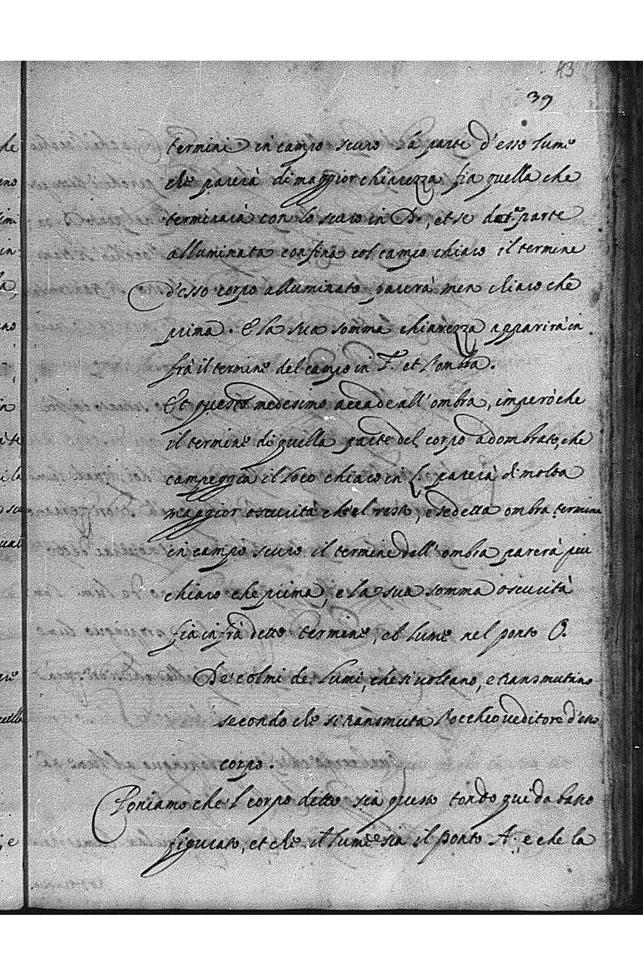 43
39
termini in campo scuro la parte d'esso lume
che parerà di maggior chiarezza fia quella che
terminarà con lo scuro in D, et se detta parte
alluminata confina col campo chiaro il termine
d'esso corpo alluminato parerà men chiaro che
prima. E la sua somma chiarezza apparirà in
frà il termine del campo in F. et l'ombra.
Et questo medesimo accade all'ombra, imperò che
il termine di quella parte del corpo adombrato, che
campeggia il loco chiaro in L. parerà di molta
maggior oscurità che'l resto, e se detta ombra termina
in campo scuro il termine dell'ombra parerà piu
chiaro che prima, e la sua somma oscurità
fia infrà detto termine, et lume nel ponto O.
De' colmi de lumi, che si voltano, e transmutano
secondo che si transmuta l'occhio veditore d'esso
corpo.
Poniamo che'l corpo detto sia questo tondo qui da basso
figurato, et che il lume sia il ponto A, e che la